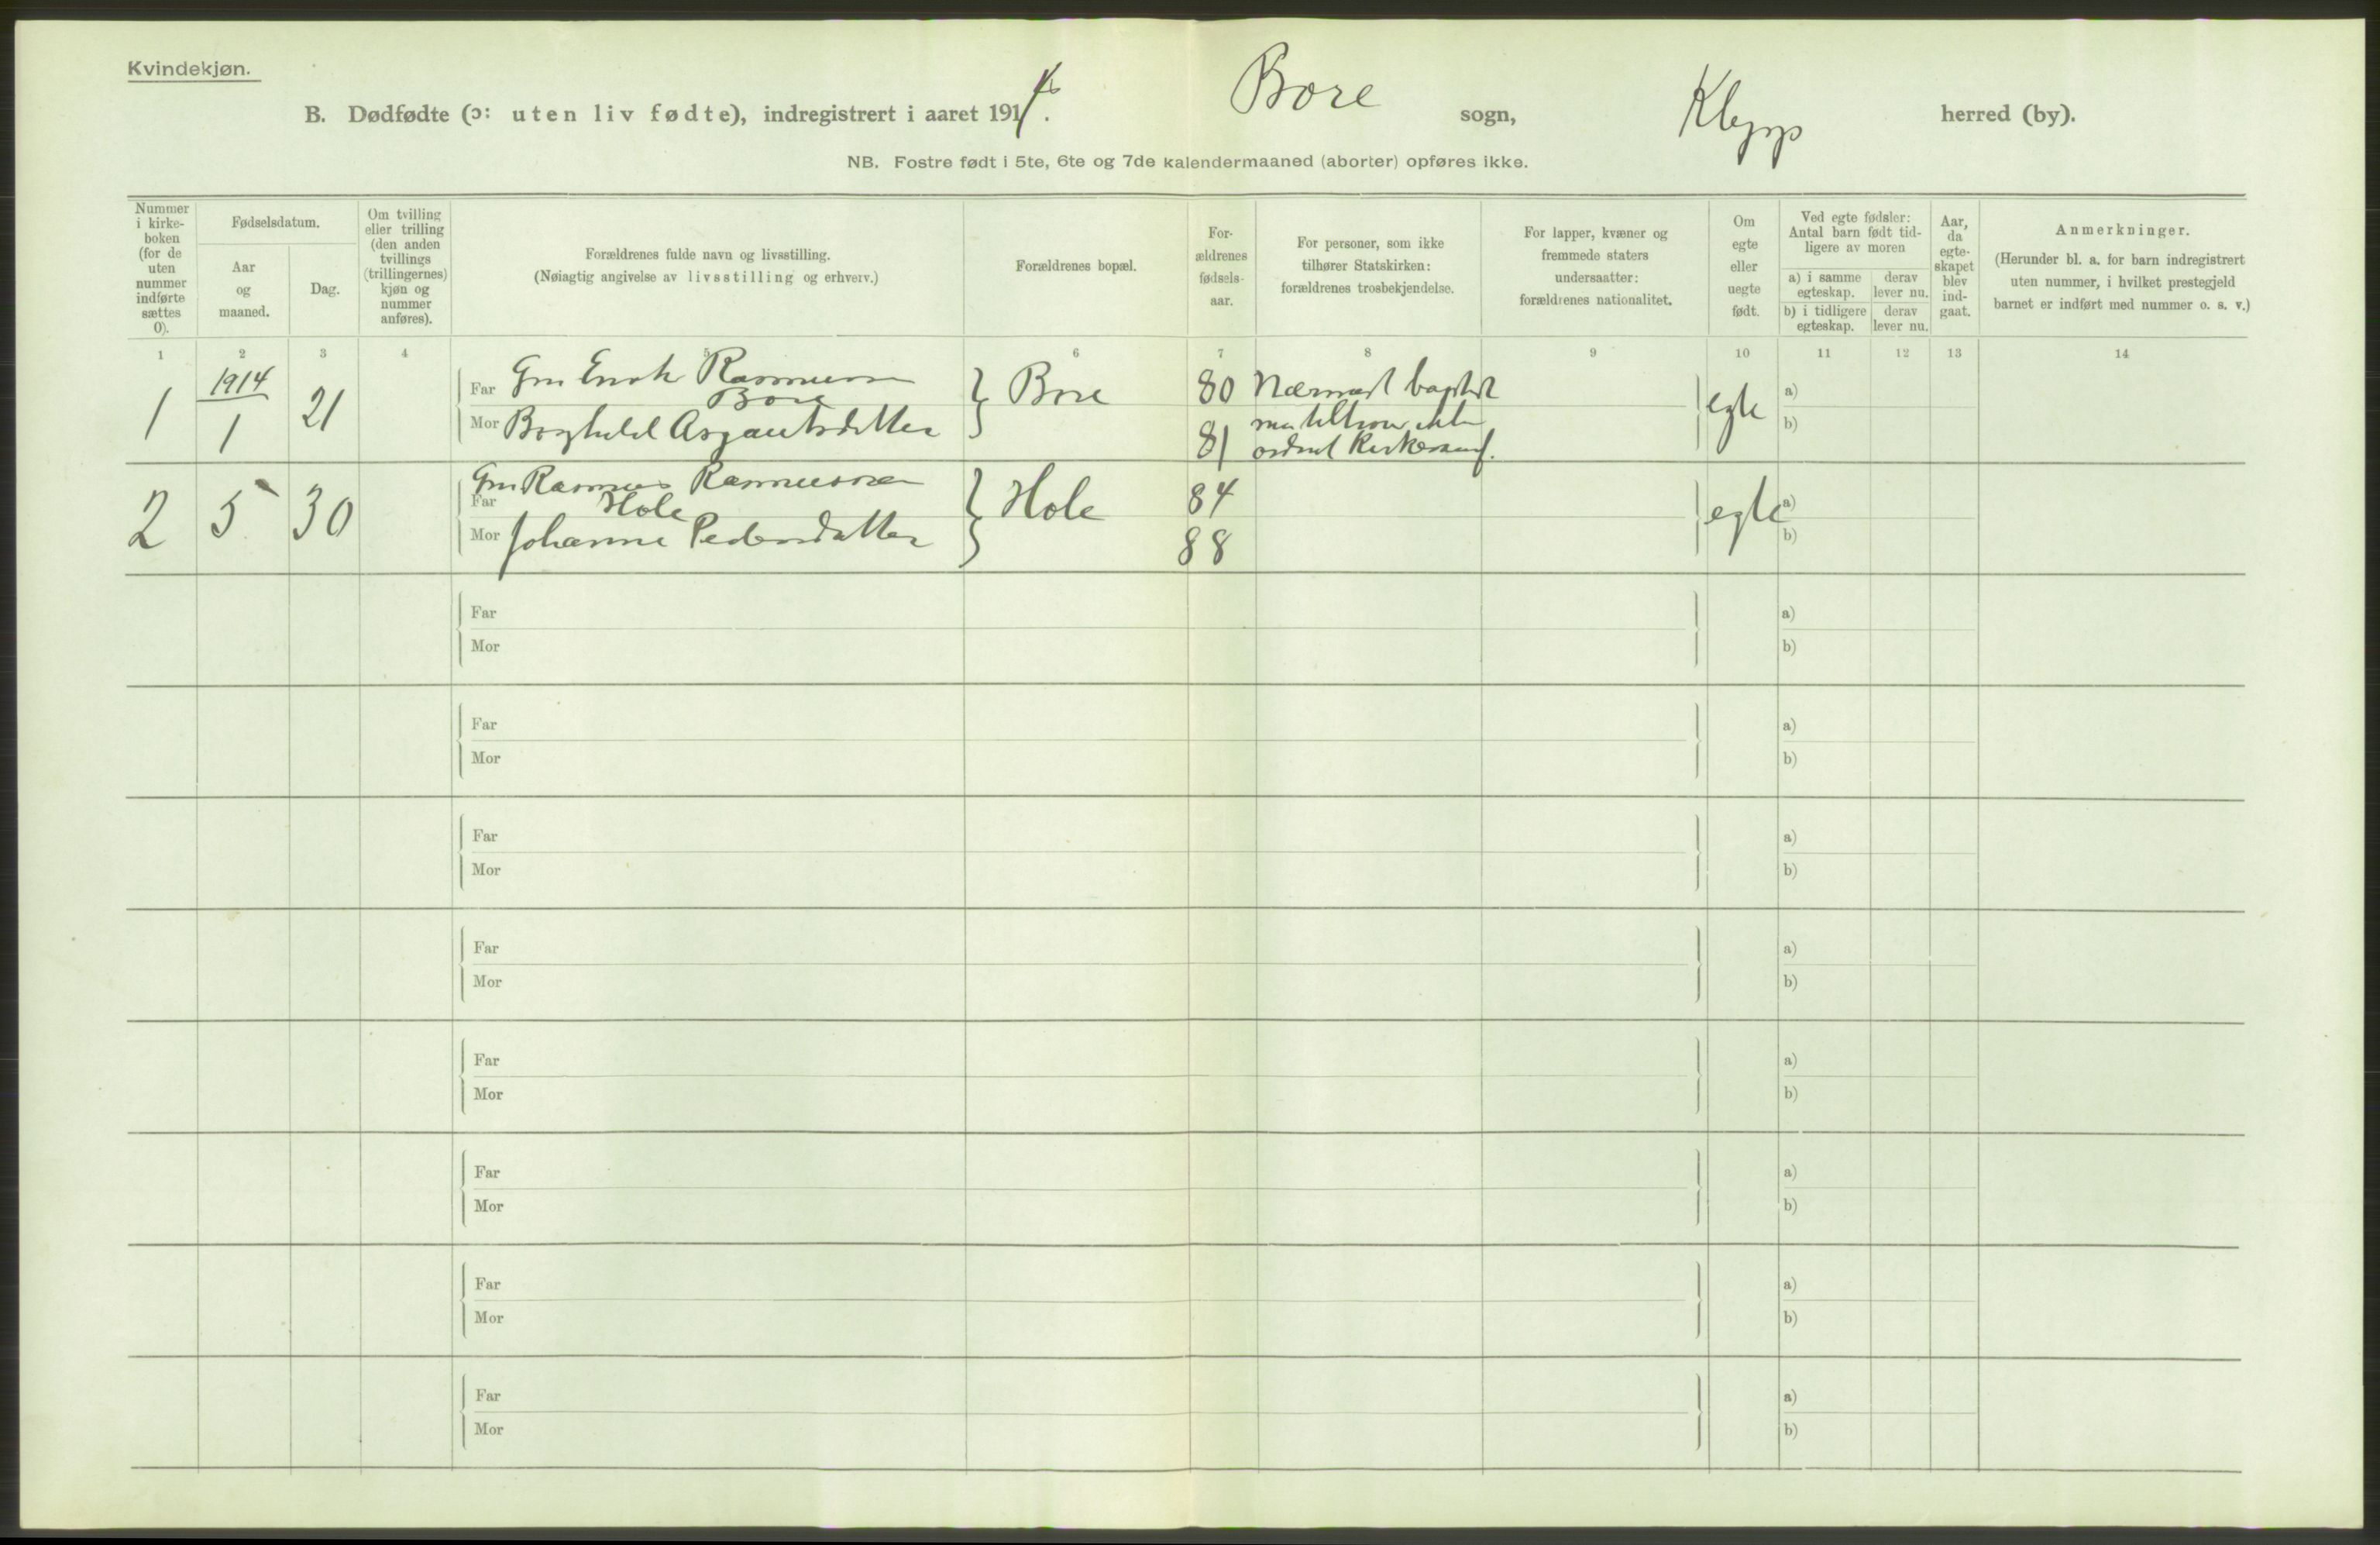 Kvindekjøn.
B. Dødfødte (ɔ: uten liv fødte), indregistrert i aaret 1914.
Bore sogn, Klepp herred (by).
NB. Fostre født i 5te, 6te og 7de kalendermaaned (aborter) opføres ikke.
Nummer
i kirke-
boken
(for de
uten
nummer
indførte
sættes
0).
Fødselsdatum.
Aar
og
maaned.
Dag.
Om tvilling
eller trilling
(den anden
tvillings
(trillingernes)
kjøn og
nummer
anføres).
Forældrenes fulde navn og livsstilling.
(Nøiagtig angivelse av livsstilling og erhverv.)
Forældrenes bopæl.
For-
ældrenes
fødsels-
aar.
For personer, som ikke
tilhører Statskirken:
forældrenes trosbekjendelse.
For lapper, kvæner og
fremmede staters
undersaatter:
forældrenes nationalitet.
Om
egte
eller
uegte
født.
Ved egte fødsler:
Antal barn født tid-
ligere av moren
a) i samme
egteskap.
derav
lever nu.
b) i tidligere
egteskap.
derav
lever nu.
Aar,
da
egte-
skapet
blev
ind-
gaat.
Anmerkninger.
(Herunder bl. a. for barn indregistrert
uten nummer, i hvilket prestegjeld
barnet er indført med nummer o. s. v.)
1 2 3 4 5 6 7 8 9 10 11 12 13 14
1 1914 1 21
Far Gm Enok Rasmussen
Bore
Mor Borghild Asgautsdatter
Bore
80
81
Nærmest baptist
ordnet Kirkesamf.
egte
a)
b)
2 5 30
Gm Rasmus Rasmussen
Far Hole
Mor Johanne Pedersdatter
Hole
84
88
egte
a)
b)
Far a)
Mor b)
Far a)
Mor b)
Far a)
Mor b)
Far a)
Mor b)
Far a)
Mor b)
Far a)
Mor b)
Far a)
Mor b)
Far a)
Mor b)